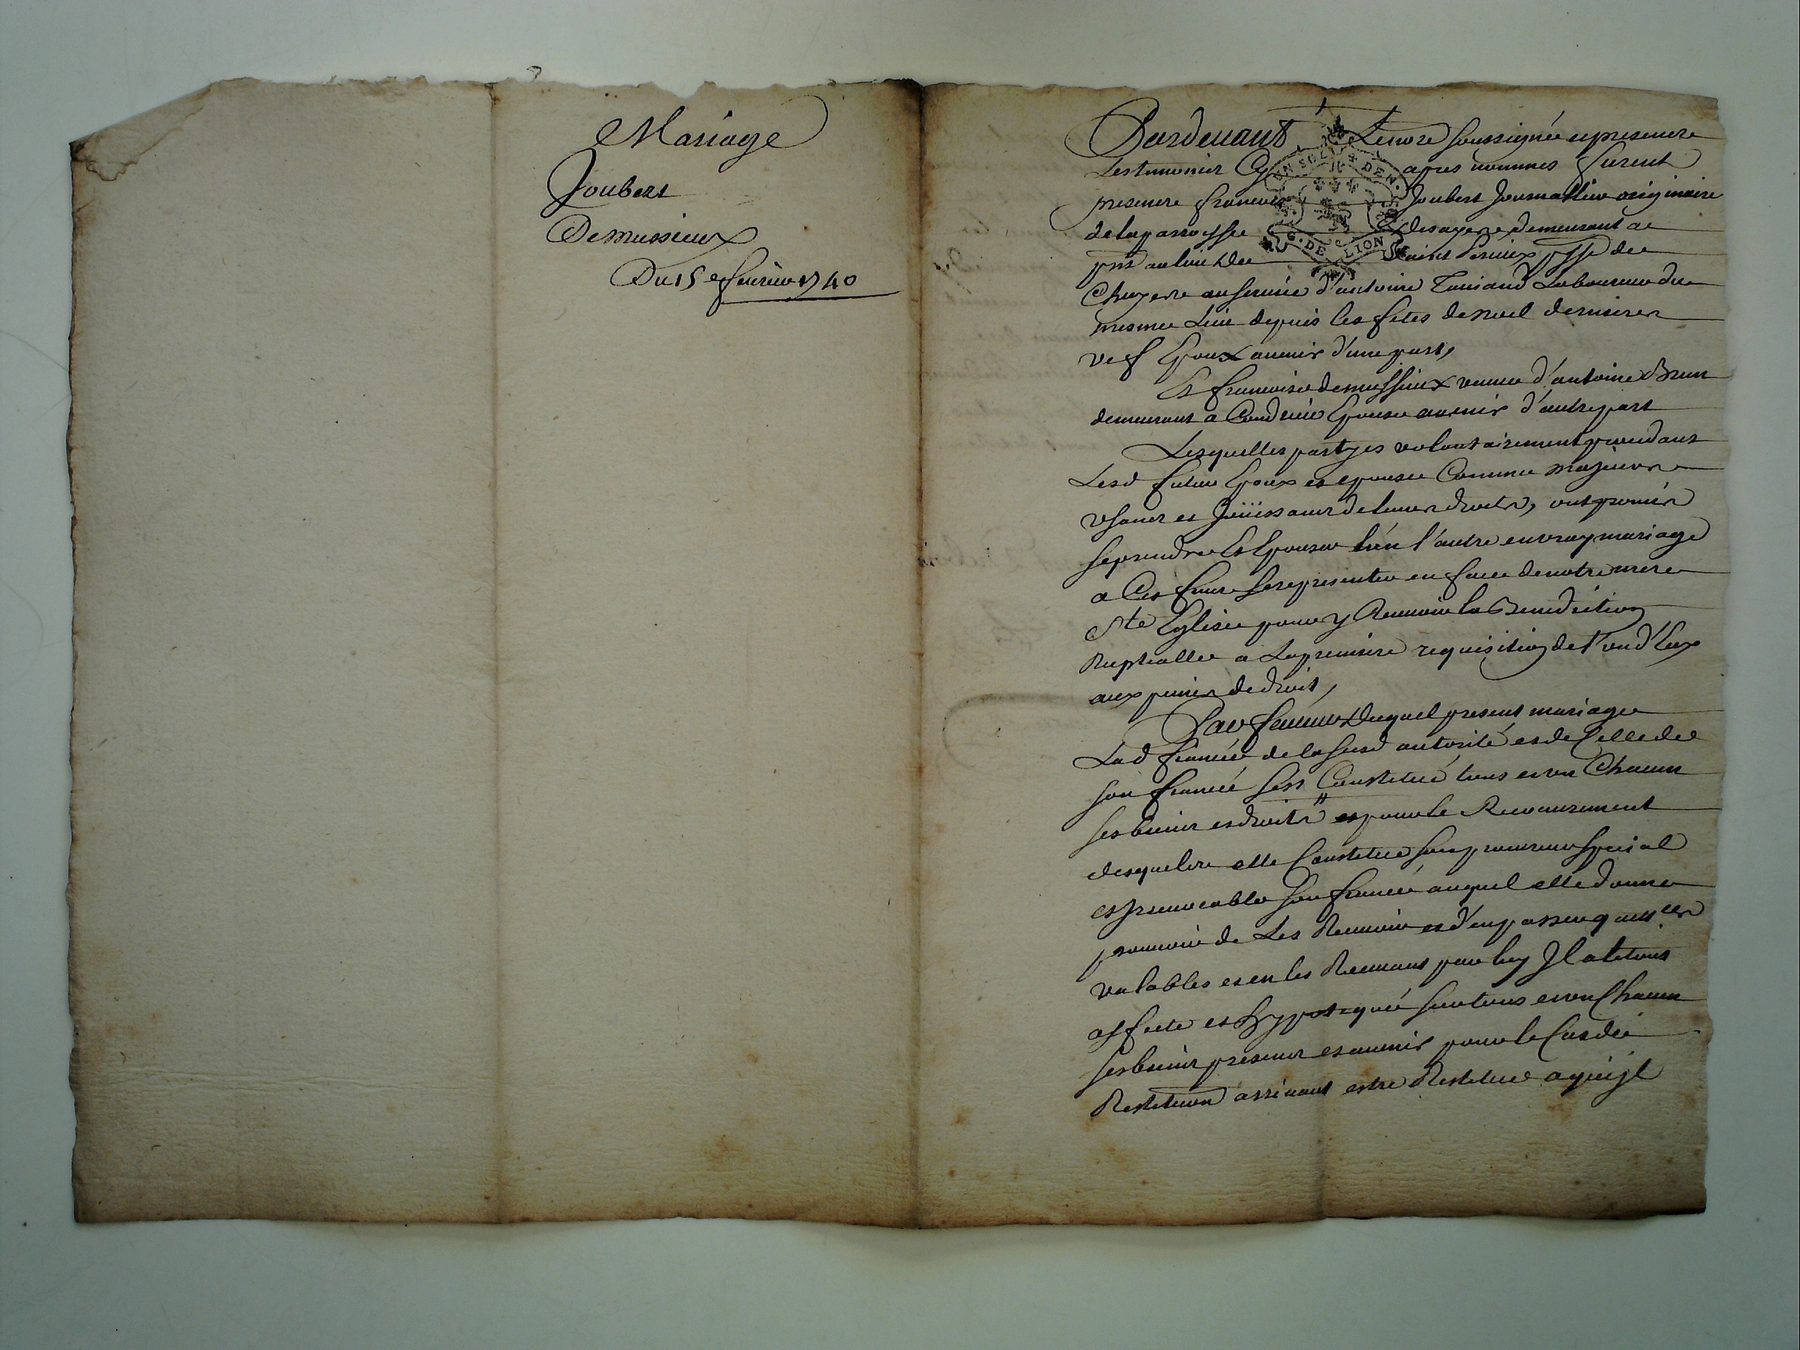 Mariage
Joubert
Demussieux
Du 15e fevrier 1740
Pardevant Le no.re soussigné et presence
Les temoins Cy apres nommes furent
presence francois Joubert Journallier originaire
de la parroisse demeurant a
pnt au lieu de Saint psse de
Chuyere au service d'antoine Laboureur du
mesme Lieu depuis les fetes de noel dernieres
vef Epoux avenir d'une part,
Et francoise demussieux veuve d'antoine Brun
demeurant a Condrieu Epouse avenir d'autre part
Lesquelles partyes volontairement procedant
Lesd futurs Epoux et epouse Comme majeurs
usants et Joüissants de leurs droits, ont promis
se prendre Et Epouser l'un l'autre en vray mariage
a Ces fins se representer en face de notre mere
Ste Eglise pour y Recevoir la Benediction
Nuptialle a La premiere requisition de l'un d'Eux
aux peines de droit,
En faveur Duquel present mariage
Lad fiancée de la susd autorité et de Celle de
son fiancé sest Constitué tous et un Chacun
ses biens et droits et pour le Recouvrement
desquels elle Constitue son procureur special
et Irrevocable son fiancé auquel elle donne
pouvoir de Les Recevoir et d'en passer quittces
valables et en les Recevant par luy Il a le tout
affecté et hypotequé sur tous et un Chacun
ses biens presents et avenir pour le Cas de
Restitution arrivant estre Restitué a qui il
G. DE LION